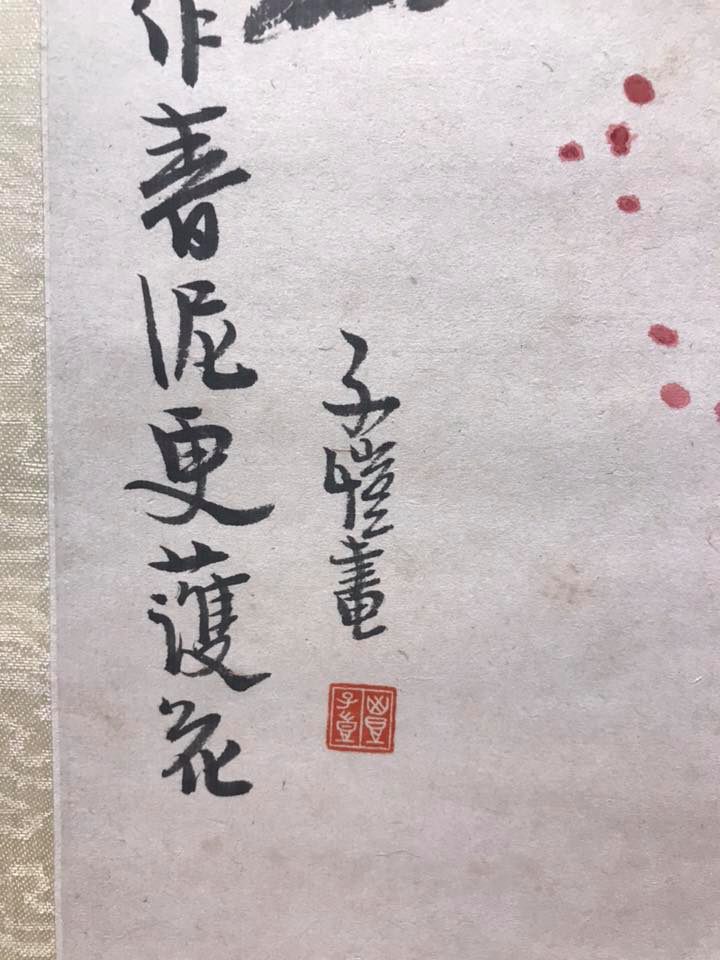 作春泥更護花
子愷畫
豐子愷